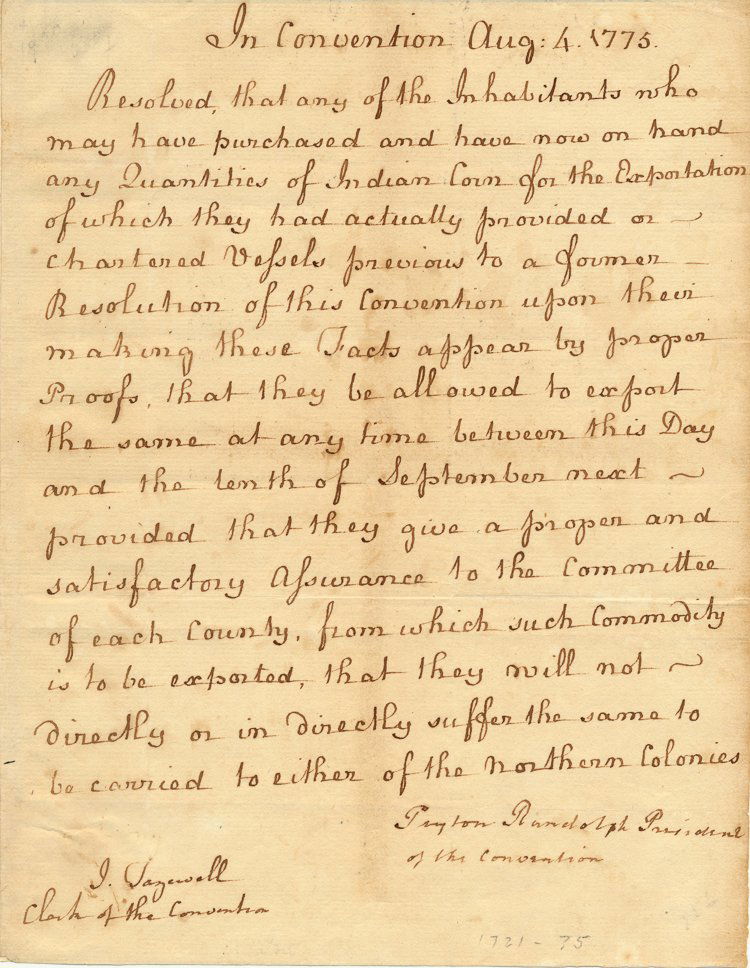 In Convention Aug: 4. 1775.
Resolved, that any of the Inhabitants who
may have purchased and have now on hand
any Quantities of Indian Corn for the Exportation
of which they had actually provided or ~
chartered Vessels previous to a former –
Resolution of this Convention upon their
making these Facts appear by proper
Proofs, that they be allowed to export
the same at any time between this Day
and the tenth of September next ~
provided that they give a proper and
satisfactory Assurance to the Committee
of each County, from which such Commodity
is to be exported, that they will not ~
directly or in directly suffer the same to
be carried to either of the Northern Colonies
Peyton Randolph President
of the Convention
J. Tazewell
Clerk of the Convention
1721-75